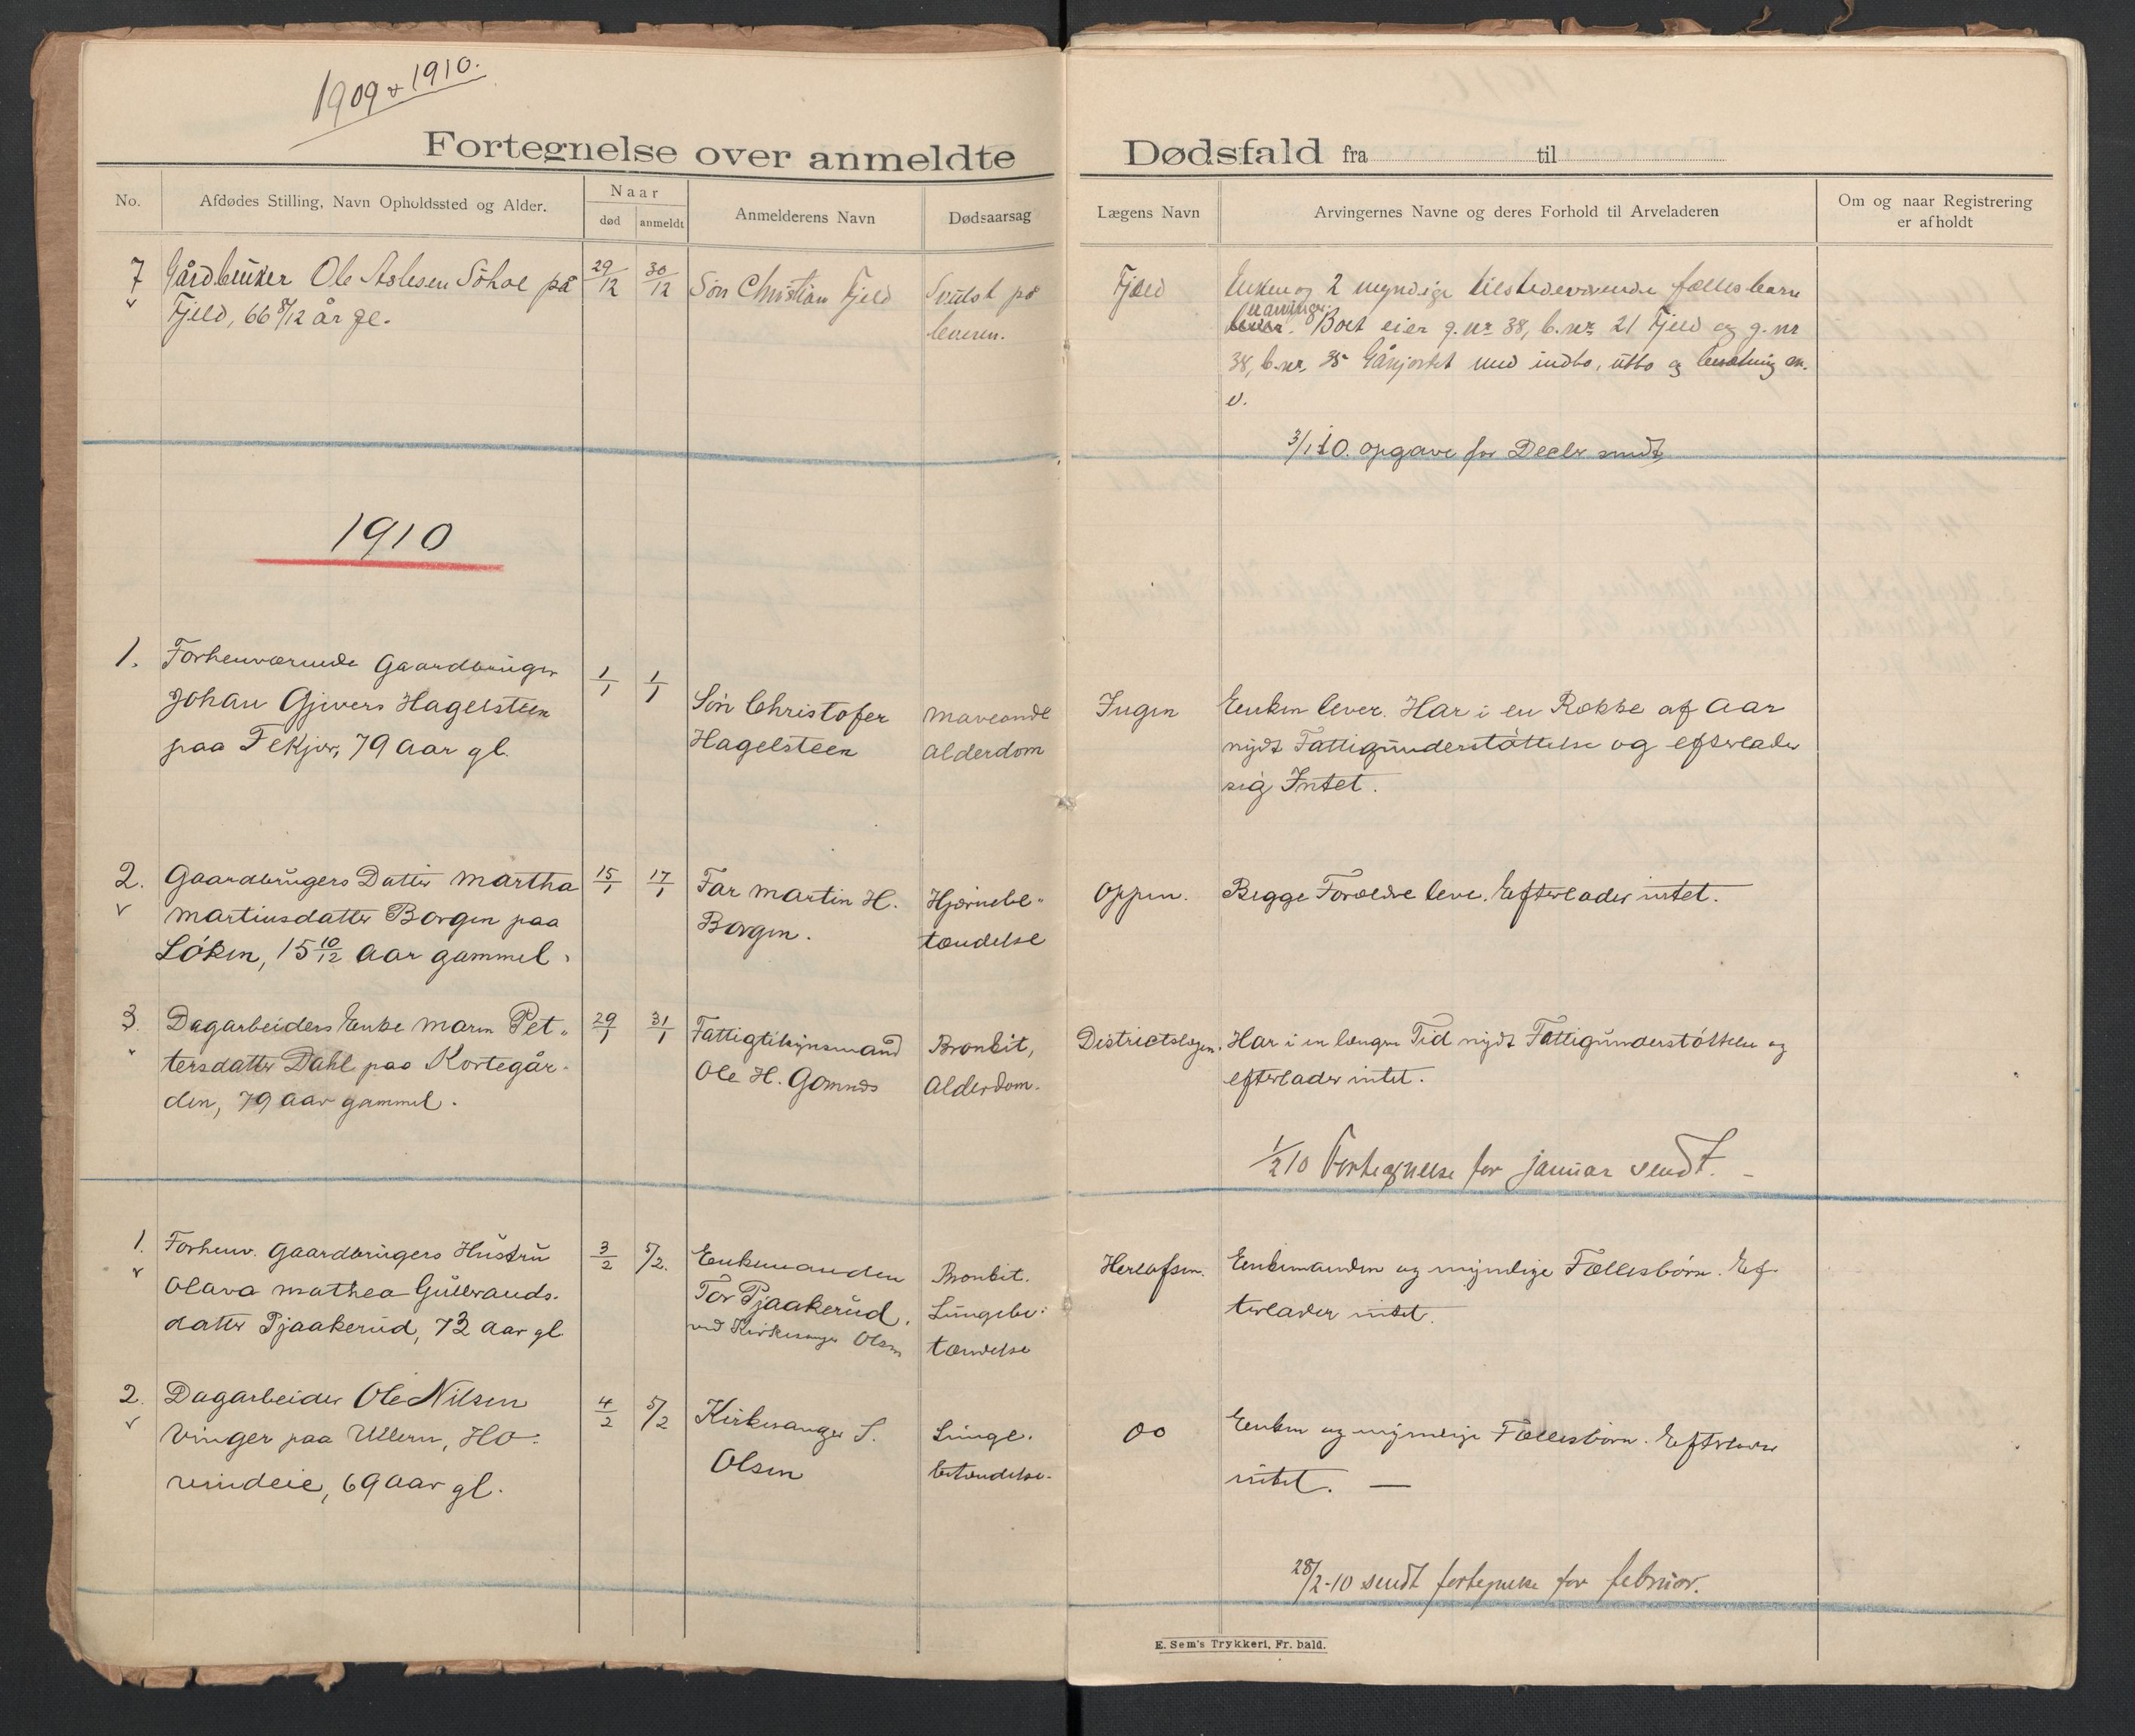 1909 & 1910.
Fortegnelse over anmeldte Dødsfald fra til
No.
Afdødes Stilling, Navn Opholdssted og Alder.
Naar
død
anmeldt
Anmelderens Navn
Dødsaarsag
Lægens Navn
Arvingernes Navne og deres Forhold til Arveladeren
Om og naar Registrering
er afholdt
7
Gårdbruker Ole Aslesen Söhol på
Fjeld, 66 8/12 år gl.
29/12
30/12
Sön Christian Fjeld
Svulst på
leveren.
Fjeld
Enken og 2 myndige tilstedeværende fællesbarn
Boet eier g. nr 38, b. nr. 21 Fjeld og g. nr
38, b. nr. 35 med indbo, utbo og besætning m.
v.
3/1 10. opgave for Decbr sendt
1910
1.
Forhenværende Gaardbruger
Johan Gjivers Hagelsteen
paa Tekjer, 79 Aar gl.
1/1
1/1
Sön Christofer
Hagelsteen
Maveonde
Alderdom
Ingen
Enken lever. Har i en Rokke af Aar
nydt Fattigunderstöttelse og efterlader
sig Intet.
2.
Gaardbrugers Datter Martha
Martinsdatter Borgen paa
Löken, 15 10/12 Aar gammel.
15/1
17/1
Far Martin H.
Borgen.
Hjernebe-
tændelse
Oppen.
Begge Forældre leve. Efterlader intet.
3.
Dagarbeiders Enke Maren Pet-
tersdatter Dahl paa Kortegår-
den, 79 Aar gammel.
29/1
31/1
Fattigtilsynsmand
Ole H. Gomnes
Bronkit,
Alderdom.
Districtslægen.
Har i en længre Tid nydt Fattigunderstöttelse og
efterlader intet.
1/2 10 Fortegnelse for januar sendt. -
1.
Forhenv. Gaardbrugers Hustru
Olava Mathea Gulbrands-
datter Pjaakerud, 73 Aar gl.
3/2
5/2.
Enkemanden
Tor Pjaakerud,
ved Kirkesanger Olsen
Bronkit.
Lungebe-
tændelse
Herlofsen.
Enkemanden og myndige Fællesbörn. Ef-
terlader intet.
2.
Dagarbeider Ole Nilsen
Vinger paa Ullern, Ho-
veideie, 69 Aar gl.
4/2
5/2
Kirkesanger S.
Olsen
Lunge-
betændelse.
Do
Enken og myndige Fællesbörn. Efterlader
intet. —
28/2-10 sendt fortegnelse for februar.
E. Sem's Trykkeri, Fr. hald.